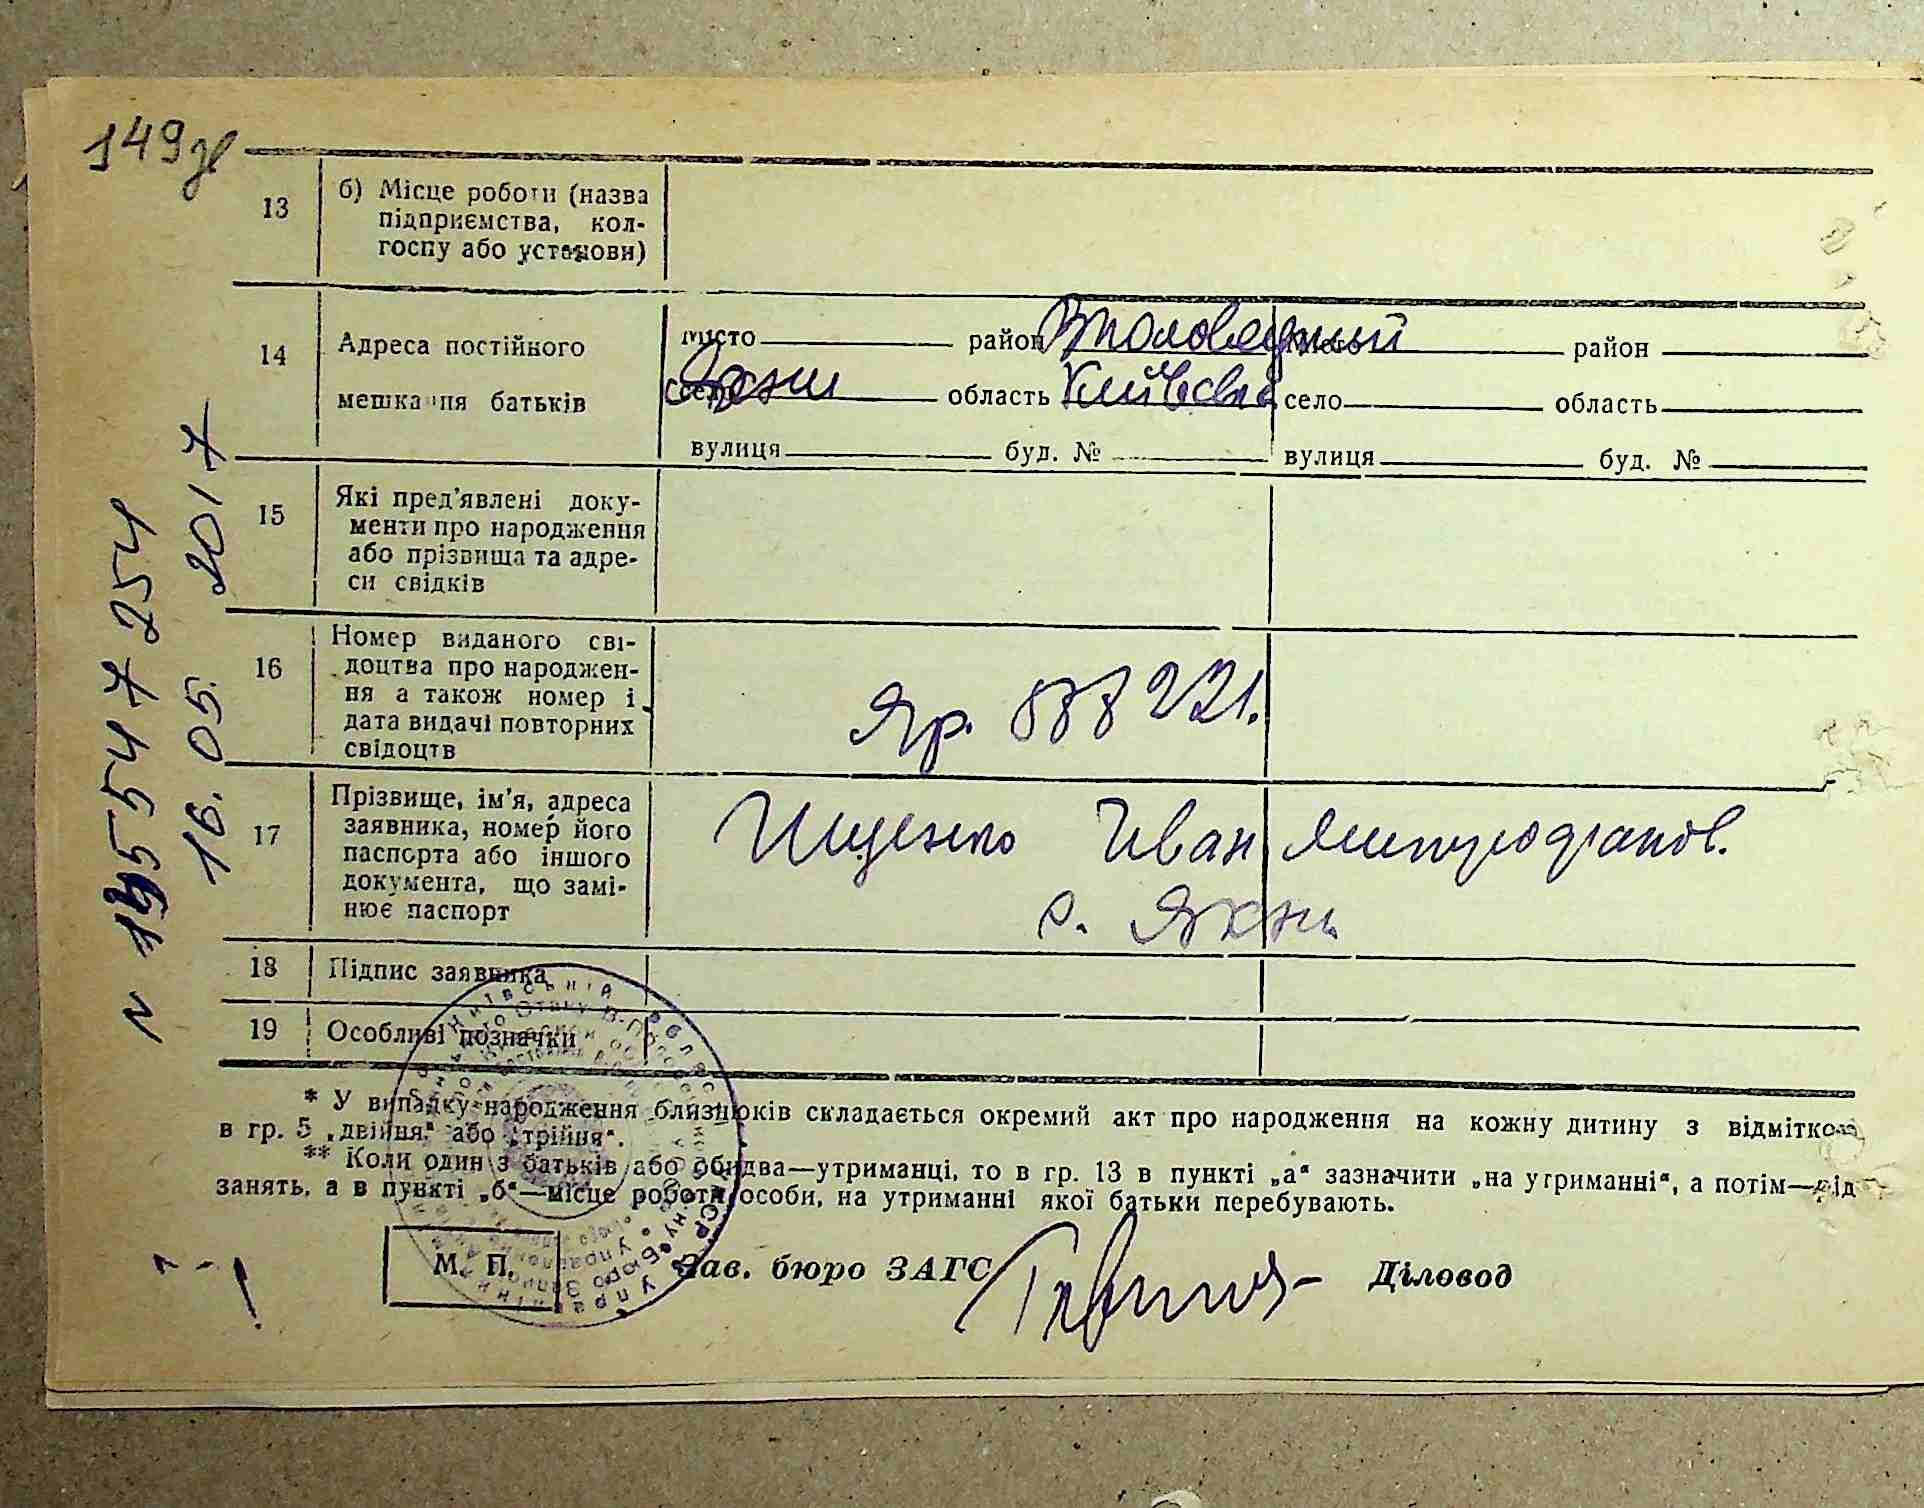 149зв
13 б) Місце роботи (назва
підприємства, кол-
госпу або установи)
14 Адреса постійного
мешкання батьків
місто район
село Яхни область Київськ
вулиця буд. №
місто район
село область
вулиця буд. №
15 Які пред'явлені доку-
менти про народження
або прізвища та адре-
си свідків
16 Номер виданого сві-
доцтва про народжен-
ня а також номер і
дата видачі повторних
свідоцтв
Яр. 888221.
17 Прізвище, ім'я, адреса
заявника, номер його
паспорта або іншого
документа, що замі-
нює паспорт
Ищенко Иван Митрофанов.
с. Яхни
18 Підпис заявника
19 Особливі позначки
* У випадку народження близнюків складається окремий акт про народження на кожну дитину з відміткою
в гр. 5 „двійня“ або „трійня“.
** Коли один з батьків або обидва—утриманці, то в гр. 13 в пункті „а“ зазначити „на утриманні“, а потім—рід
занять, а в пункті „б“—місце роботи особи, на утриманні якої батьки перебувають.
М. П. Зав. бюро ЗАГС Діловод
16. 05. 2017